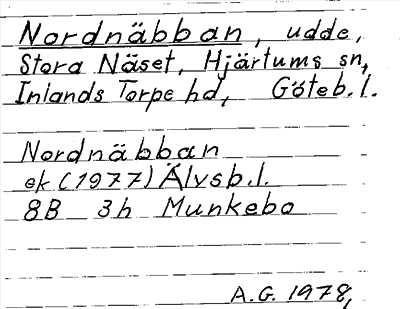 Nordnäbban, udde,
Stora Näset, Hjärtums sn,
Inlands Torpe hd, Göteb.l.
Nordnäbban
ek (1977) Älvsb.l.
8B 3h Munkebo
A.G. 1978,